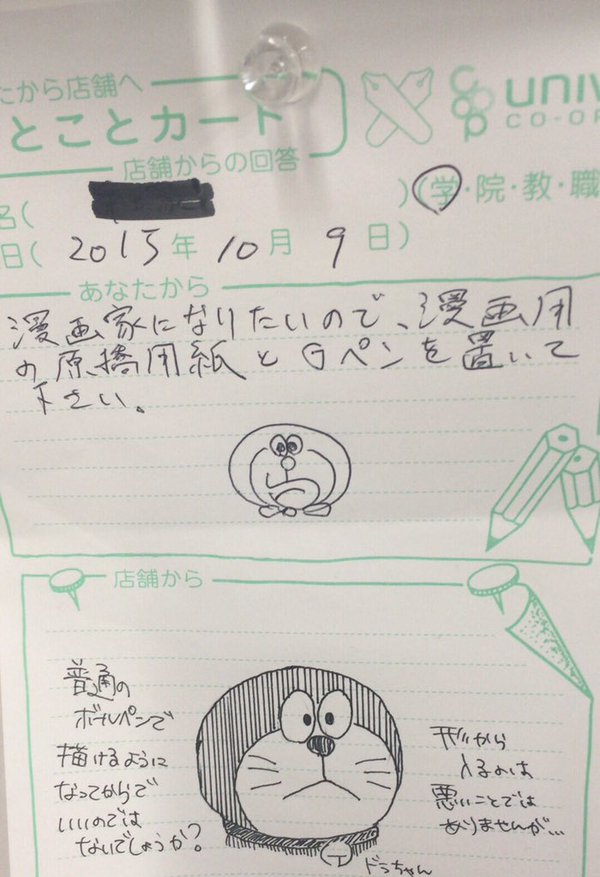 たから店舗へ
とことカード
UNIV
CO-OP
店舗からの回答
名( )(学・院・教・職
日( 2015年 10月 9日)
あなたから
漫画家になりたいので、漫画用
の原稿用紙とGペンを置いて
下さい。
店舗から
普通の
ボールペンで
描けるように
なってからで
いいのでは
ないでしょうか?
形から
入るのは
悪いことでは
ありませんが…
ドラちゃん